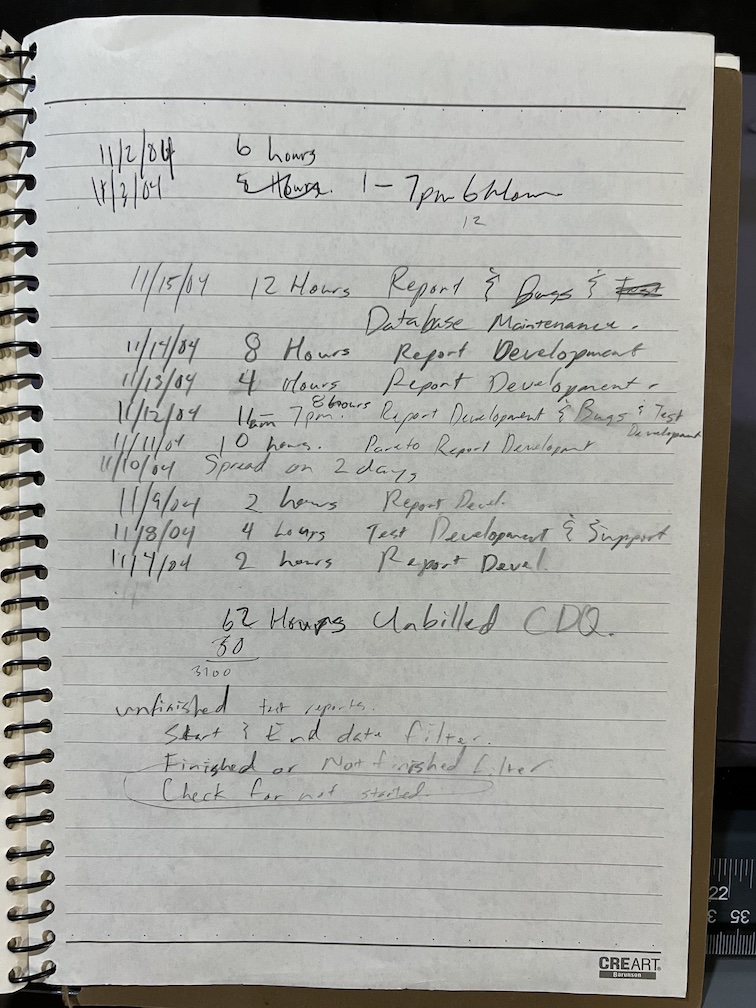 11/2/04 6 hours
11/3/04 Hours. 1 - 7pm 6
12
11/15/04 12 Hours Report & Bugs & Test
Database Maintenance.
11/14/04 8 Hours Report Development
11/13/04 4 Hours Report Development.
11/12/04 11am 7pm. 8 hours Report Development & Bugs & Test
Development
11/11/04 10 hours. Pareto Report Development
11/10/04 Spread on 2 days
11/9/04 2 hours Report Devel.
11/8/04 4 hours Test Development & Support
2 hours Report Devel.
62 Hours Unbilled CDQ.
50
3100
unfinished test reports.
Start & End date filter.
Finished or Not finished filter
Check for not started.
CREART
Barunson
22
35